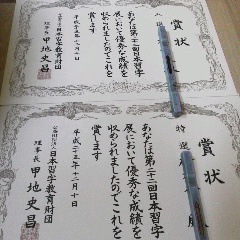 賞状
入選
あなたは第二十一回日本習字
展において優秀な成績を
収められましたのでこれを
賞します
平成二十五年十一月十日
公益財団法人日本習字教育財団
理事長 甲地史昌
賞状
特選
あなたは第二十一回日本習字
展において優秀な成績を
収められましたのでこれを
賞します
平成二十五年十一月十日
公益財団法人日本習字教育財団
理事長 甲地史昌